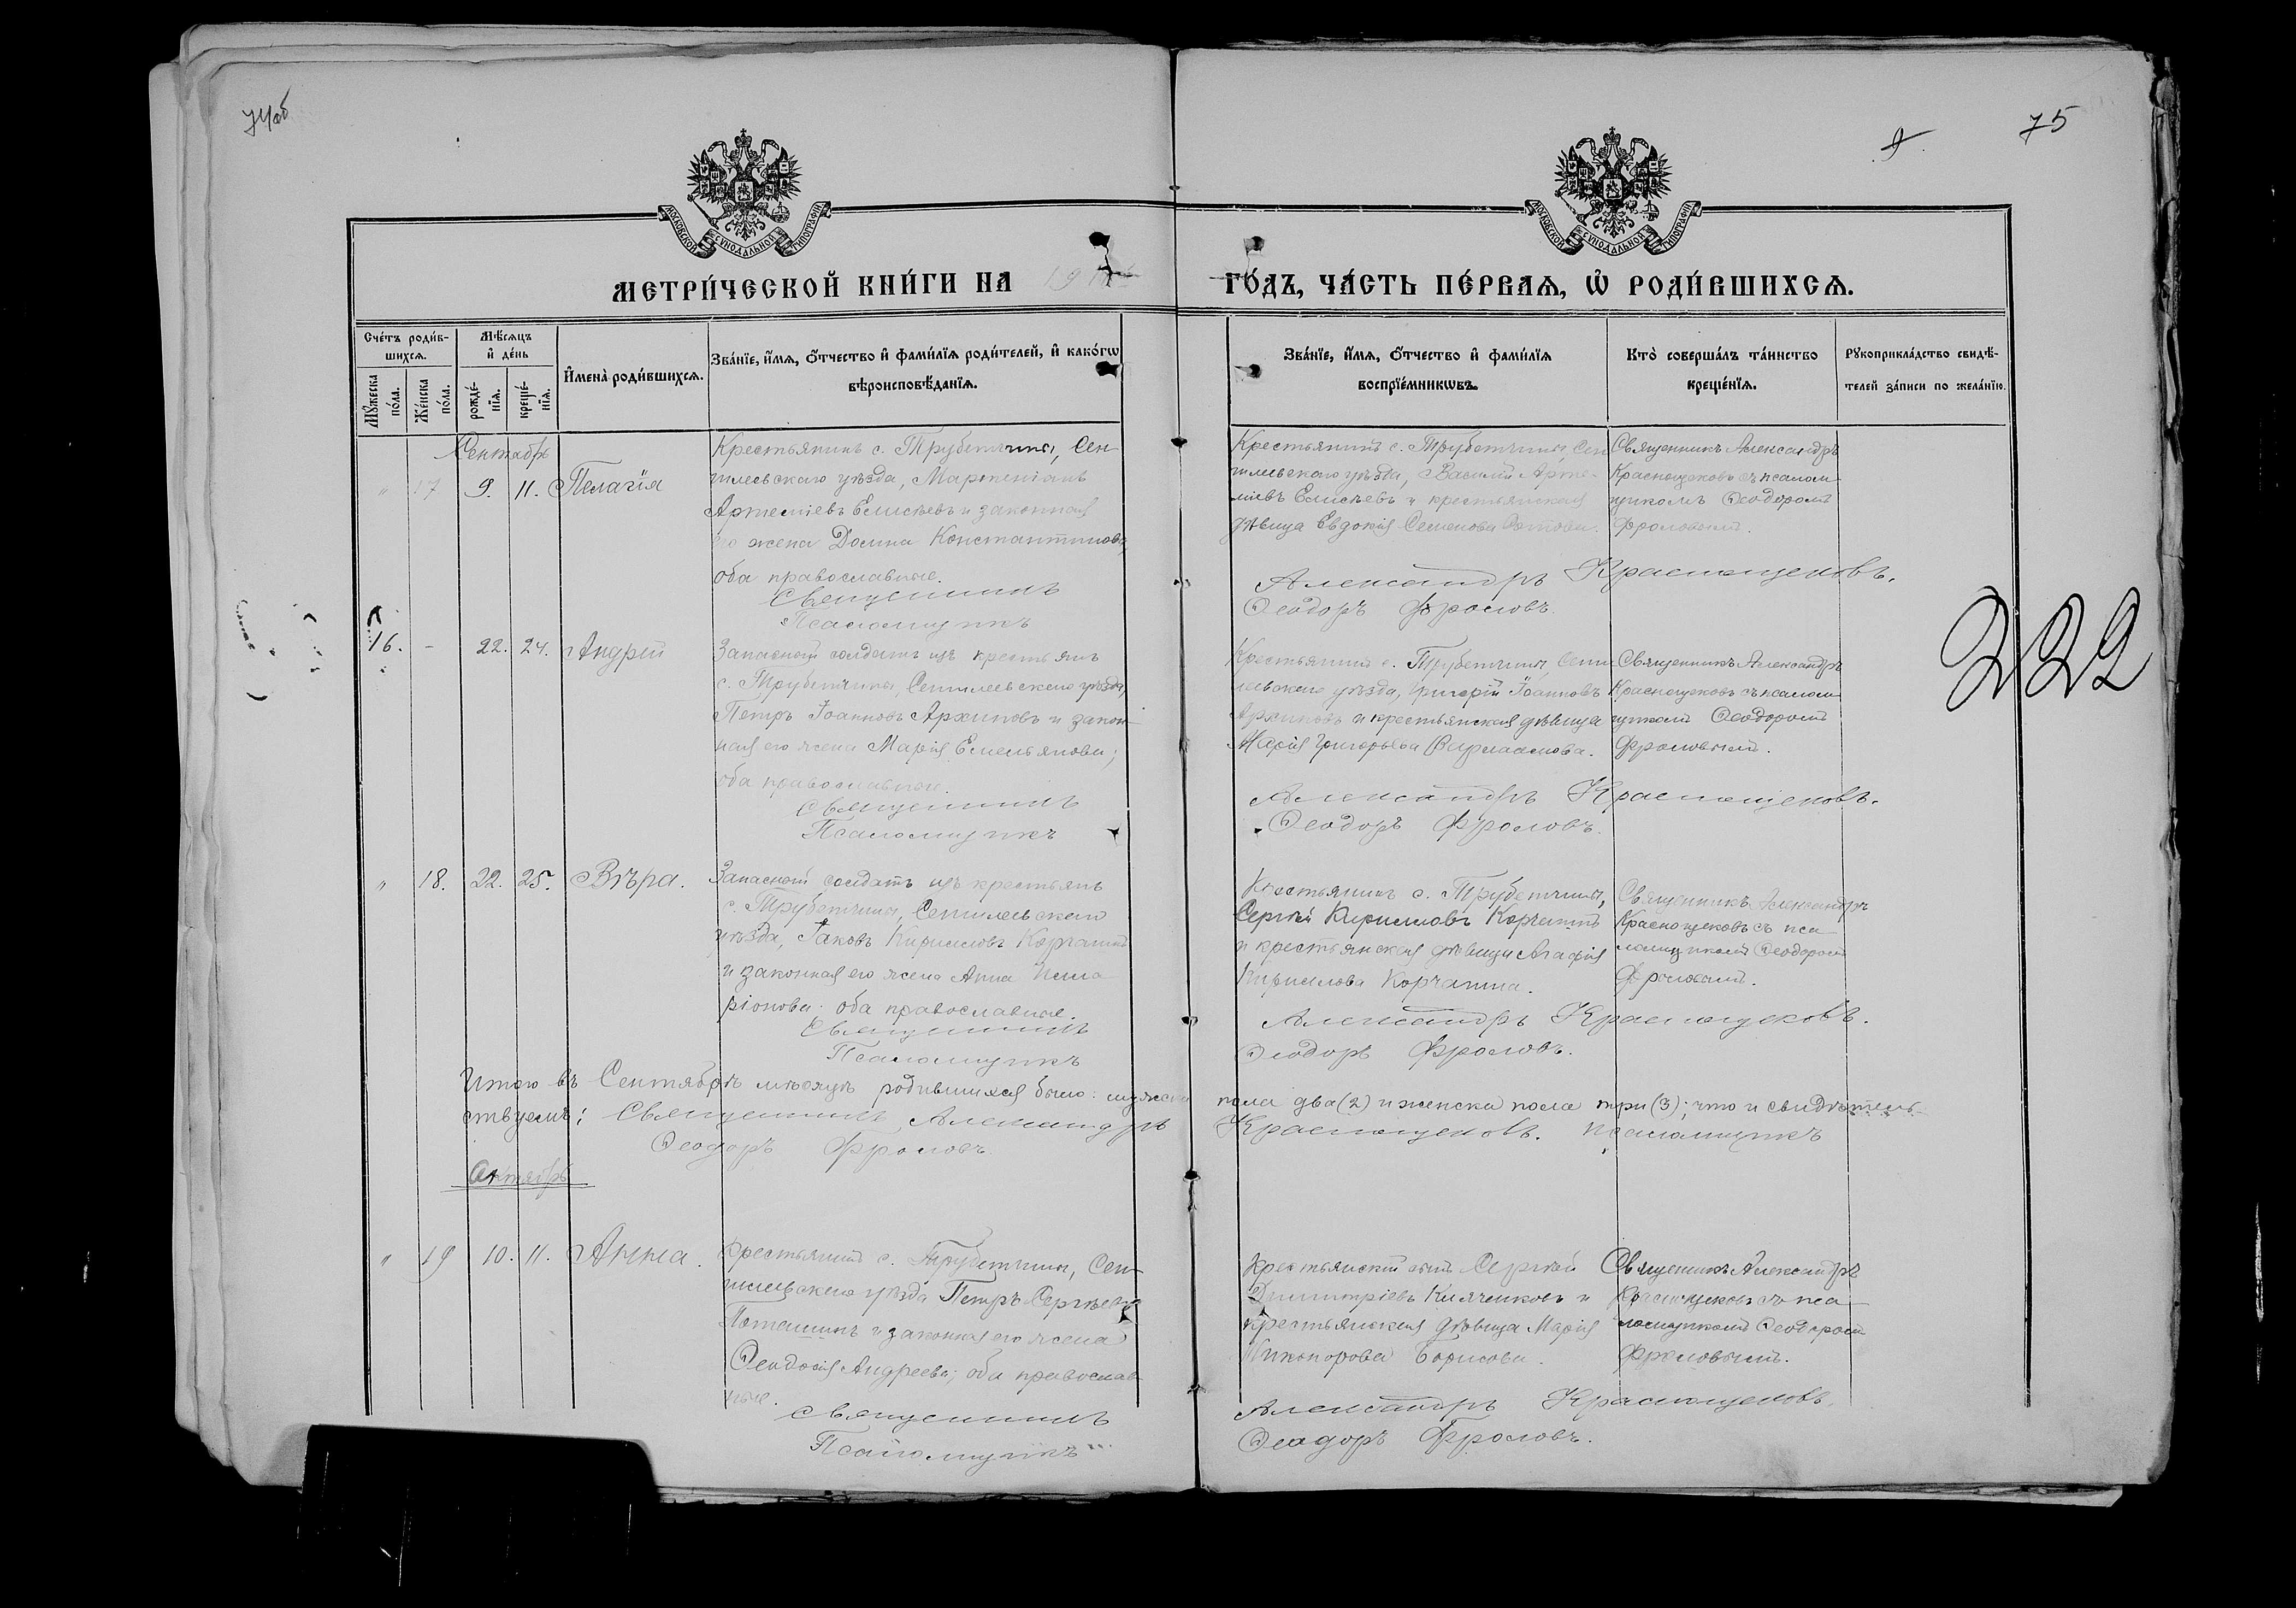 74об
9
75
МОСКОВСКОЙ СѴНОДАЛЬНОЙ ТИПОГРАФІИ
МОСКОВСКОЙ СѴНОДАЛЬНОЙ ТИПОГРАФІИ
МЕТРИ́ЧЕСКОЙ КНИ́ГИ НА 19
ГО́ДЪ, ЧА́СТЬ ПЕ́РВАѦ, Ѡ҆ РОДИ́ВШИХСѦ.
Сче́тъ роди́в-
шихсѧ.
Мꙋ́жеска по́ла.
Же́нска по́ла.
Мѣ́сѧцъ
и҆ де́нь
рожде́-
нїѧ.
креще́-
нїѧ.
И҆мена̀ роди́вшихсѧ.
Зва́нїе, и҆́мѧ, ѻ҆́тчество и҆ фами́лїѧ роди́телей, и҆ како́гѡ
вѣроисповѣ́данїѧ.
Зва́нїе, и҆́мѧ, ѻ҆́тчество и҆ фами́лїѧ
воспрїе́мникѡвъ.
Кто̀ соверша́лъ та́инство
креще́нїѧ.
Рꙋкоприкла́дство свидѣ́-
телей за́писи по жела́нїю.
Сентябрь
" 17 9. 11. Пелагія
Крестьянинъ с. Трубетчины, Сен-
гилеевскаго уѣзда, Мартиніанъ
Артеміевъ Елисѣевъ и законная
его жена Домна Константинова,
оба православные.
Священникъ
Псаломщикъ
Крестьянинъ с. Трубетчины, Сен
гилеевскаго уѣзда, Василій Арте-
міевъ Елисѣевъ и крестьянская
дѣвица Евдокія Семенова
Священникъ Александръ
Краснощековъ съ псалом
щикомъ Ѳеодоромъ
Фроловымъ.
Александръ Краснощековъ.
Ѳеодоръ Фроловъ.
16. - 22. 24. Андрей
Запасной солдатъ изъ крестьянъ
с. Трубетчины, Сенгилеевскаго уѣзда,
Петръ Іоанновъ Архиповъ и закон-
ная его жена Марія Емельянова;
оба православные.
Священникъ
Псаломщикъ
Крестьянинъ с. Трубетчины, Сенги
леевскаго уѣзда, Григорій Іоанновъ
Архиповъ и крестьянская дѣвица
Марія Григорьева Варлаамова.
Священникъ Александръ
Краснощековъ съ псалом
щикомъ Ѳеодоромъ
Фроловымъ.
Александръ Краснощековъ.
Ѳеодоръ Фроловъ.
222
" 18. 22. 25. Вѣра.
Запасной солдатъ изъ крестьянъ
с. Трубетчины, Сенгилеевскаго
уѣзда, Іаковъ Кирилловъ Корчагинъ
и законная его жена Анна Ила
ріонова; оба православные.
Священникъ
Псаломщикъ
Крестьянинъ с. Трубетчины,
Сергѣй Кирилловъ Корчагинъ
и крестьянская дѣвица Агафія
Кириллова Корчагина.
Священникъ Александръ
Краснощековъ съ пса
ломщикомъ Ѳеодоромъ
Фроловымъ.
Александръ Краснощековъ.
Ѳеодоръ Фроловъ.
Итого въ Сентябрѣ мѣсяцѣ родившихся было: мужска пола два (2) и женска пола три (3); что и свидѣтель-
ствуемъ: Священникъ Александръ Краснощековъ. Псаломщикъ
Ѳеодоръ Фроловъ.
Октябрь
" 19 10. 11. Анна.
Крестьянинъ с. Трубетчины, Сен-
гилеевскаго уѣзда Петръ Сергѣевъ
Поташинъ и законная его жена
Ѳеодосія Андреева; оба православ-
ные.
Священникъ
Псаломщикъ
Крестьянскій сынъ Сергѣй
Димитріевъ и
крестьянская дѣвица Марія
Никонорова Борисова.
Священникъ Александръ
Краснощековъ съ пса-
ломщикомъ Ѳеодоромъ
Фроловымъ.
Александръ Краснощековъ.
Ѳеодоръ Фроловъ.